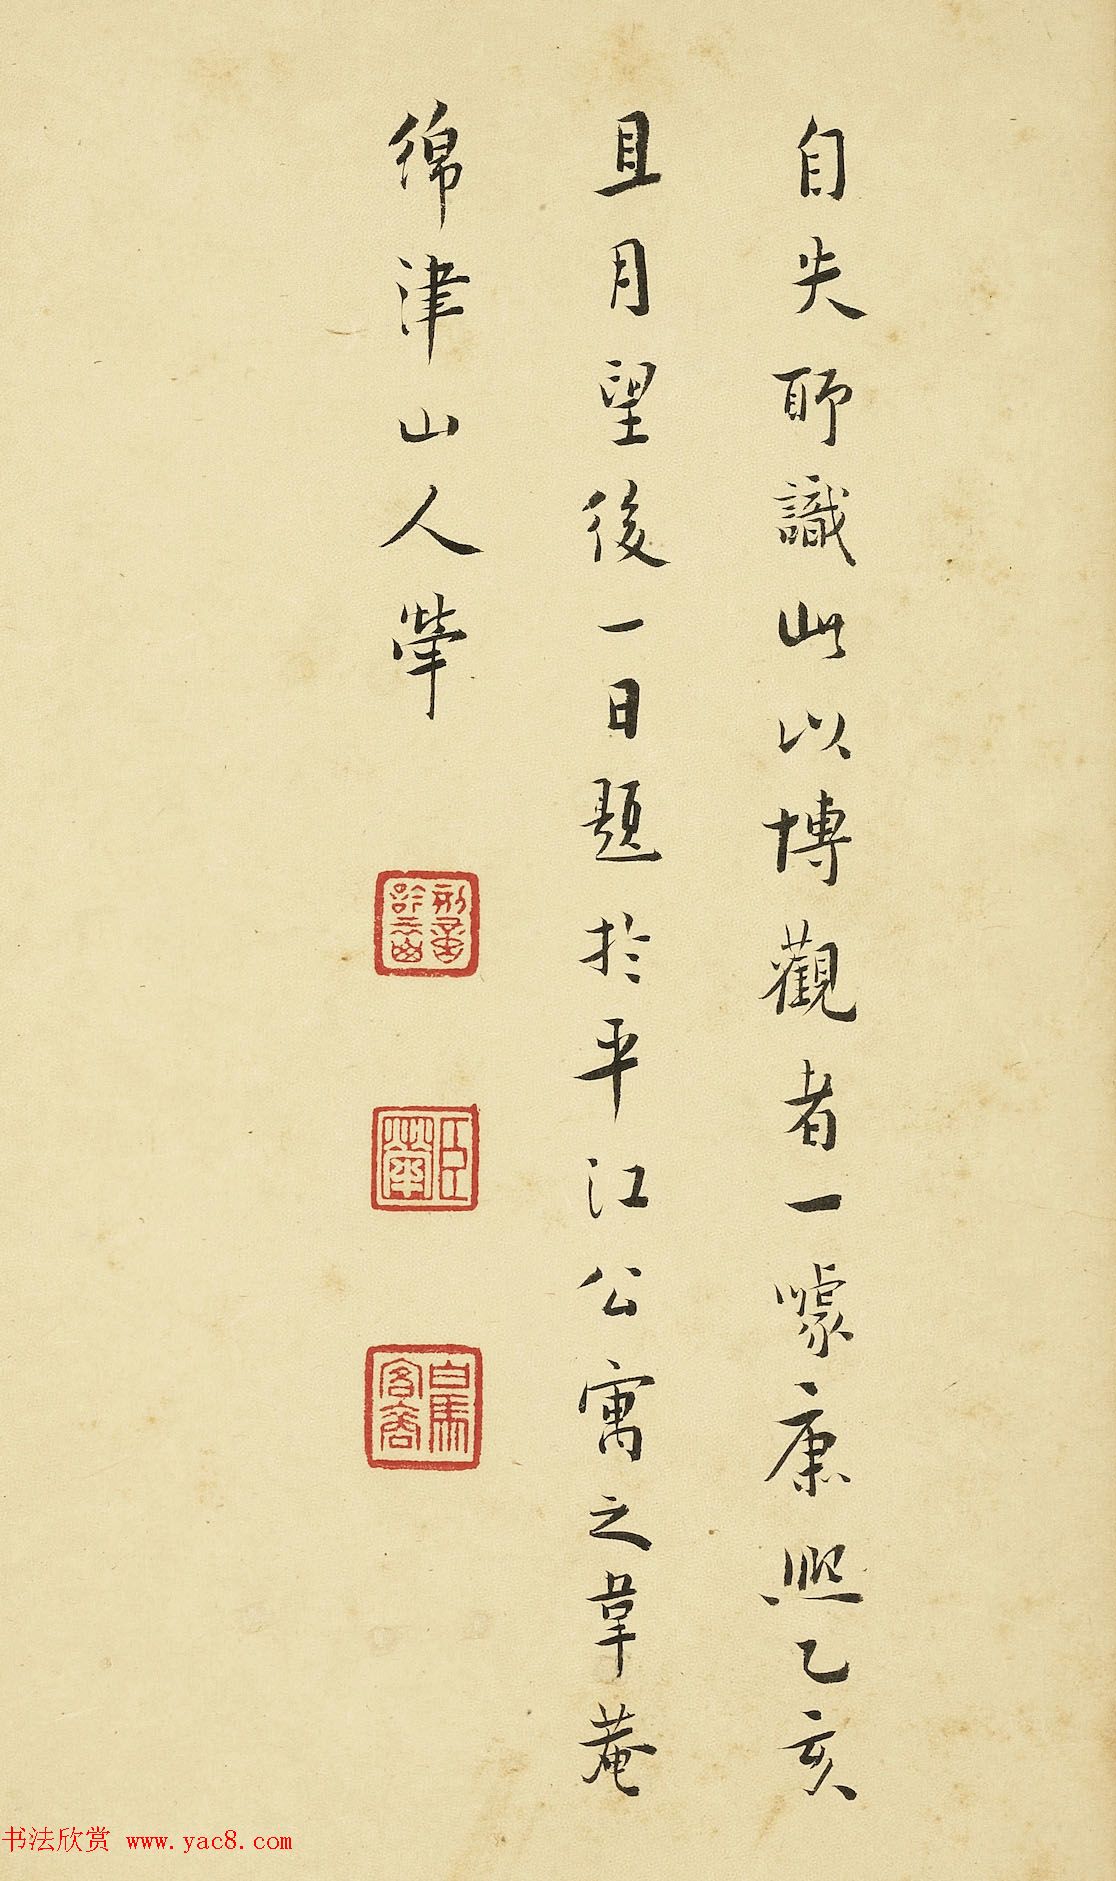 自失聊識此以博觀者一噱康熙乙亥
且月望後一日題於平江公寓之韋菴
綿津山人犖
臣犖
白馬客裔
书法欣赏 www.yac8.com